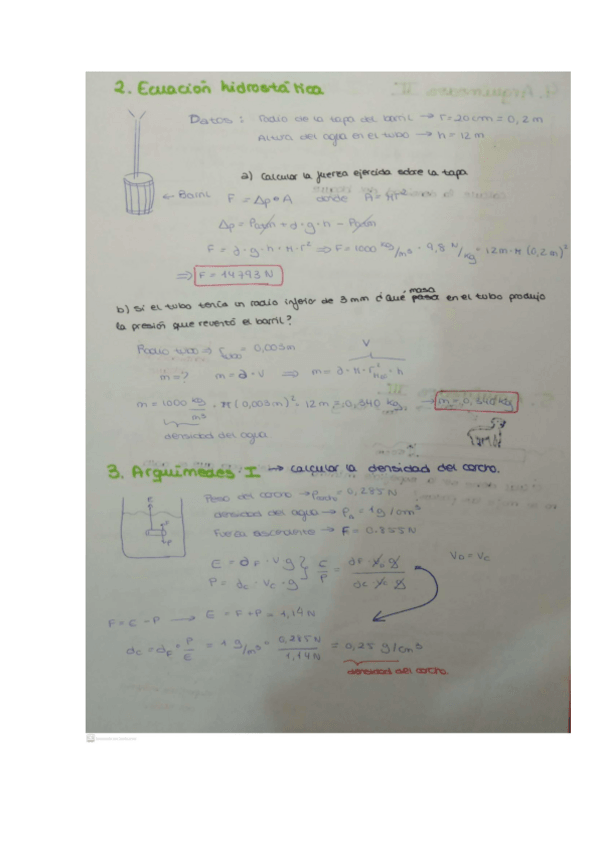 2. Ecuación hidrostática
Datos: Radio de la tapa del barril → r=20cm = 0,2 m
Altura del agua en el tubo → h = 12 m
a) Calcular la fuerza ejercida sobre la tapa
← Barril F = Δp • A donde A = πr²
Δp = Patm + d · g · h - Patm
F = d · g · h · π · r² ⇒ F = 1000 kg/m³ · 9,8 N/kg · 12m · π (0,2 m)²
⇒ F = 14793 N
b) Si el tubo tenía un radio inferior de 3 mm ¿Qué masa en el tubo produjo
la presión que reventó el barril?
Radio tubo ⇒ r tubo = 0,003m
V
m=? m = d · V ⇒ m = d · π · r² tubo · h
m = 1000 kg/m³ · π (0,003m)² · 12m = 0,340 kg → m = 0,340 kg
densidad del agua
3. Arquímedes I → calcular la densidad del corcho.
Peso del corcho → Pcorcho = 0,285 N
densidad del agua → ρa = 1 g/cm³
Fuerza ascendente → F = 0.855 N
E = dF · V · g } E/P = dF · Vc · g / dc · Vc · g VD = VC
P = dc · Vc · g
F = E - P → E = F + P = 1,14 N
dc = dF · P/E = 1 g/m³ · 0,285 N / 1,14 N = 0,25 g/cm³
densidad del corcho.